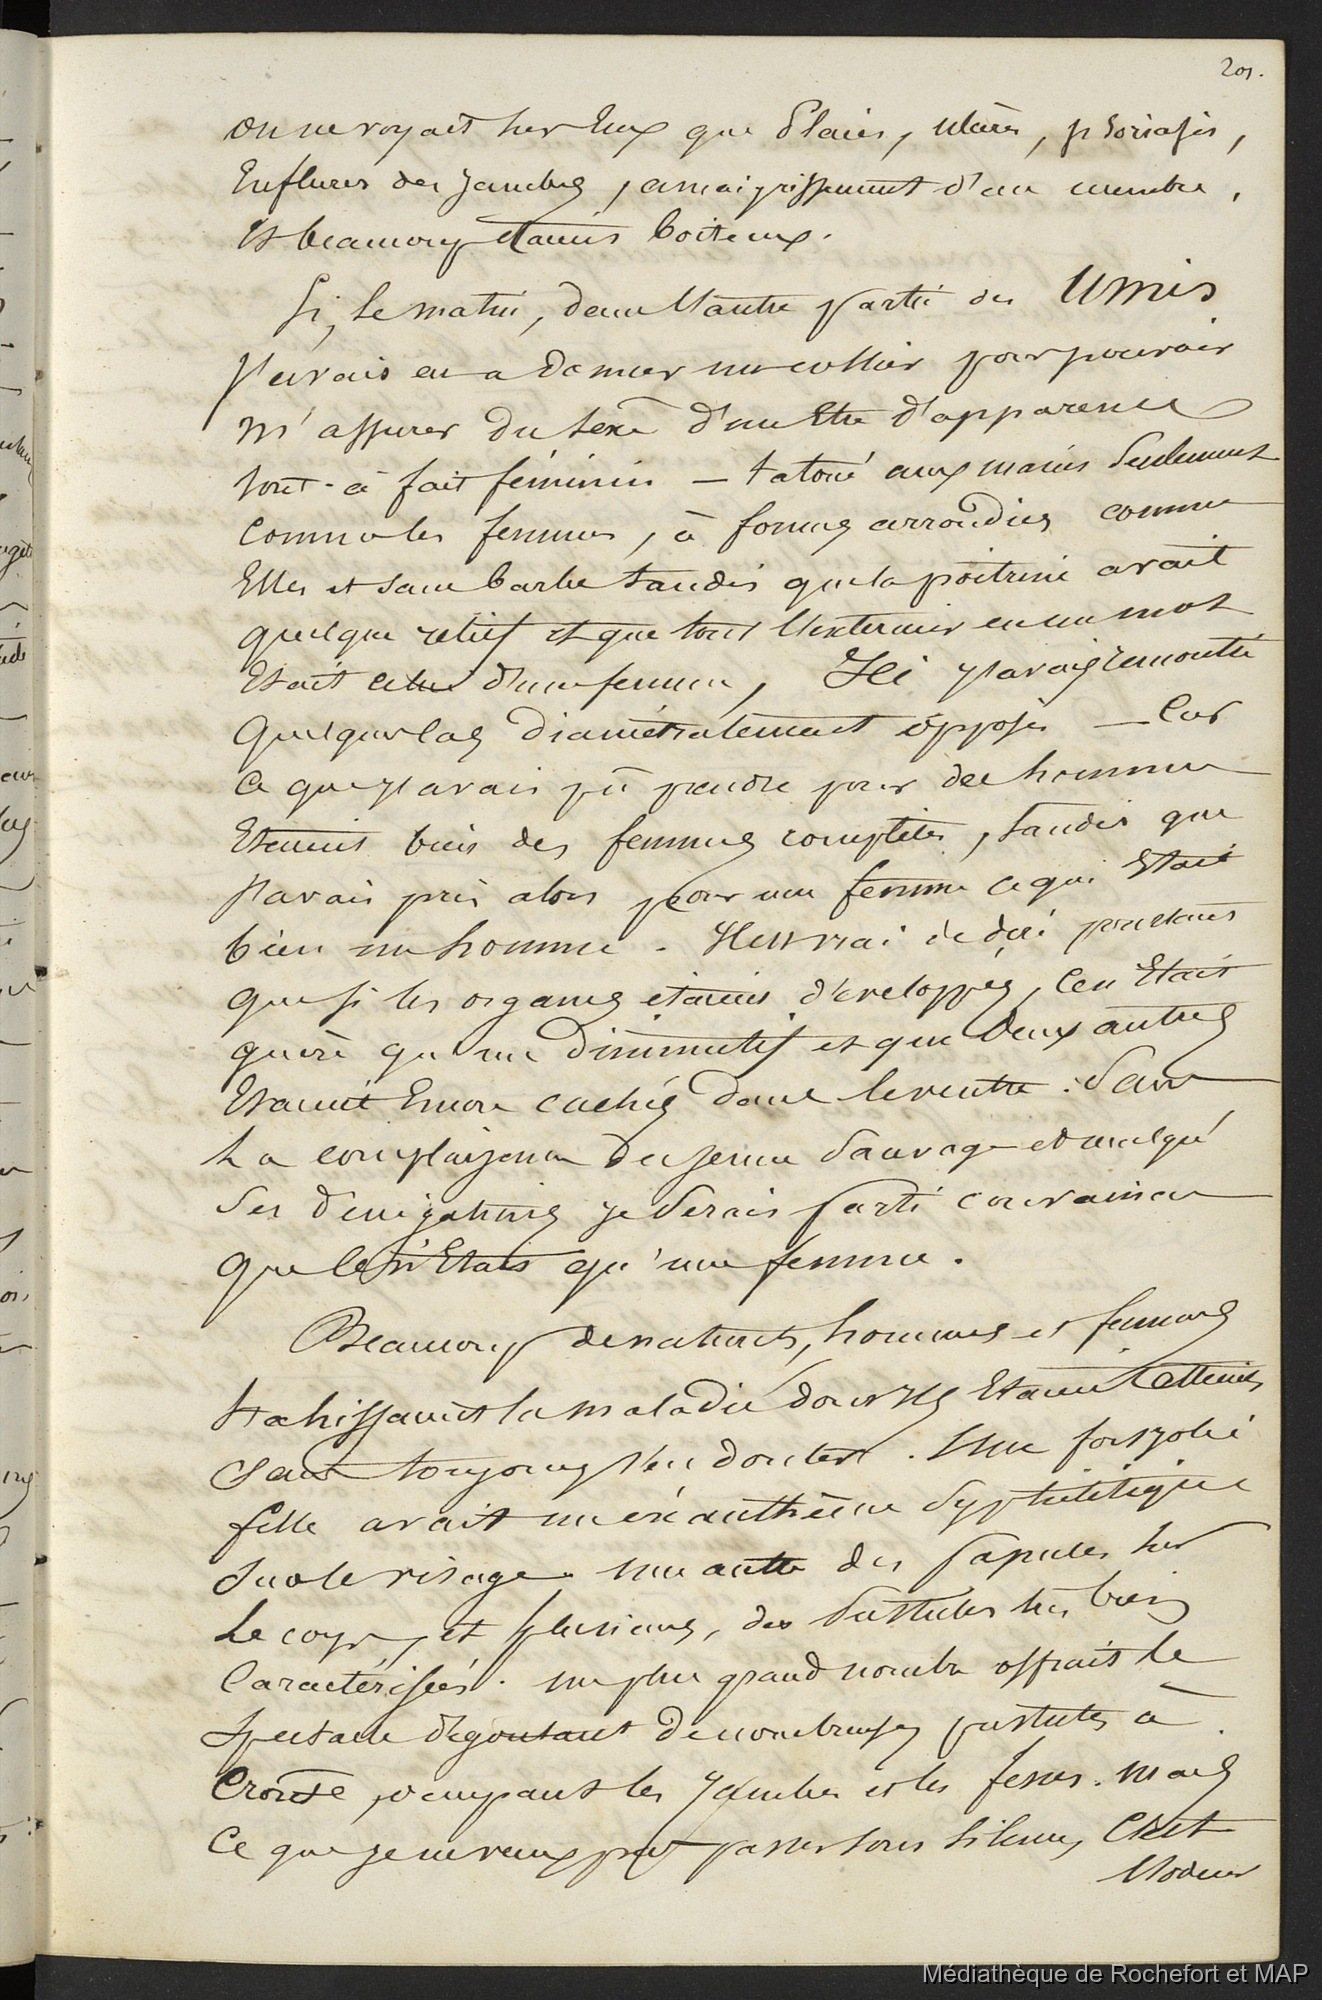 201.
on ne voyait sur Eux que Plaies, ulcères, psoriasis,
Enflures des Jambes, amaigrissement d'un membre,
Et beaucoup étaient boiteux.
Si, le matin, dans l'autre partie des Umis
J'avais eu a donner un collier pour pouvoir
m'assurer du sexe d'un Etre d'apparence
tout-à fait féminin — tatoué aux mains Seulement
comme les femmes, à formes arrondies comme
Elles et sans barbe tandis que la poitrine avait
quelque relief et que tout l'exterieur en un mot
Etait celui d'une femme, Ici j'avais rencontré
quelque cas diamétralement opposés — Car
ce que j'avais pû prendre pour des hommes
Etaient bien des femmes complètes, tandis que
J'avais pris alors pour une femme ce qui Etait
bien un homme. Il est vrai de dire pourtant
que si les organes étaient développés, ce n'Etait
guère qu'un diminutif et que deux autres
Etaient Encore cachés dans le ventre. Sans
La complaisance du jeune Sauvage et malgré
Ses dénégations je Serais parti convaincu
que ce n'Etait qu'une femme.
Beaucoup de naturels, hommes et femmes
trahissaient la maladie dont ils Etaient atteints
Sans toujours s'en douter. Une fort jolie
fille avait un éxanthème Syphilitique
Sur le visage. une autre des papules sur
Le corps, et plusieurs, des Pustules très bien
Caractérisées. un plus grand nombre offrait le
Spectacle dégoutant de nombreuses pustules à
Croûte, occupant les Jambes et les fesses. mais
Ce que je ne veux pas passer sous silence, C'est
l'odeur
Médiathèque de Rochefort et MAP